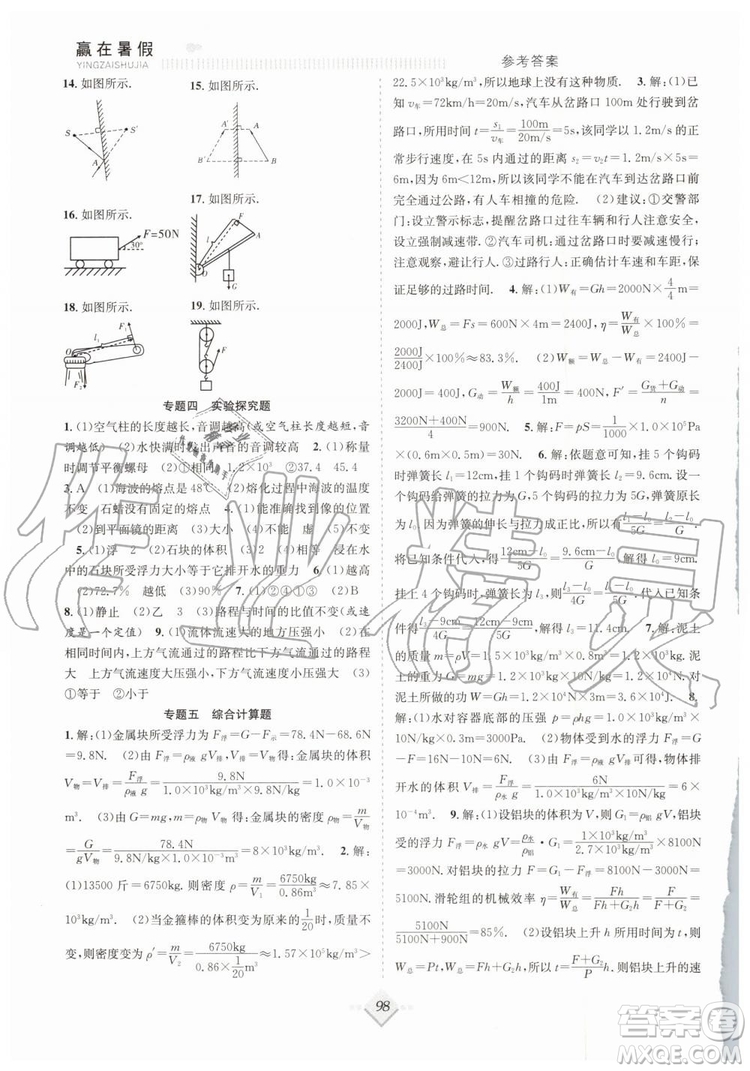 赢在暑假
YINGZAISHUJIA
参考答案
14. 如图所示.
15. 如图所示.
S
S′
A
A′
A
B′
B
16. 如图所示.
17. 如图所示.
F=50N
30°
F
A
l
O
18. 如图所示.
19. 如图所示.
F₁
l₁
O
F
专题四 实验探究题
1. (1)空气柱的长度越长,音调越高(或空气柱长度越短,音
调越低) (2)水快满时发出声音的音调较高 2. (1)称量
时调节平衡螺母 (2)①相同 ②游码 ③27.4 45.4
3. A (1)海波的熔点是48℃ (2)熔化过程中吸热温度
不变 石蜡没有固定的熔点 4. (1)能准确找到像的位置
(2)到平面镜的距离 (3)大小 (4)不能 虚
5. (1)浮 2 (2)石块的体积 (3)越大 浸在水
中石块所受浮力大小等于它排开水的重力 6. (1)越高
(2)72.7% 越低 (3)90% 7. (2)①③① (2)B
8. (1)静止 (2)乙 (3)路程与时间的比值不变(或速度
是一个定值) 9. (1)流体流速大的地方压强小 (2)在
相同时间内,上方气流通过的路程比下方气流通过的路程
大 上方气流速度大压强小,下方气流速度小压强大 (3)
①等于 ②小于
专题五 综合计算题
1. 解:(1)金属块所受浮力为F浮=G-F示=78.4N-68.6N
=9.8N. (2)由F浮=ρ液gV排得:金属块的体积
V物=V排=F浮/ρ液g=9.8N/1.0×10³kg/m³×9.8N/kg=1.0×10⁻³
m³. (3)由G=mg得:金属块的密度为ρ物=m/V物
=G/gV物=78.4N/9.8N/kg×1.0×10⁻³m³=8×10³kg/m³ 2. 解:
(1)13500斤=6750kg 金箍棒的密度ρ=m/V₁=6750kg/0.86m³=7.85×
10³kg/m³. (2)当金箍棒的体积变为原来的1/20时,质量不
变,其密度为ρ′=m/V₂=6750kg/0.86×1/20m³≈1.57×10⁵kg/m³>
22.5×10³kg/m³,所以地球上没有这种物质. 3. 解:(1)因
为v车=72km/h=20m/s,汽车从岔路口100m处行驶到岔
路口,所用时间t=s₁/v车=100m/20m/s=5s,该同学若以1.2m/s的正
常步行速度,在5s内通过的距离s₂=v₂t=1.2m/s×5s=
6m,因为6m<12m,所以该同学不能在汽车到达岔路口前
完全通过公路,有人车相撞的危险. (2)建议:①交警部
门:设立警示标志,提醒岔路口过往车辆和行人注意安全;
或设立强制减速带. ②汽车司机:过岔路口时要减速慢行;
注意观察,避让行人. ③过路行人:正确估计车速和车距,
保证足够的过路时间. 4. 解:(1)W有=Gh=2000N×4/4m=
2000J,W总=Fs=600N×4m=2400J,η=W有/W总=
2000J/2400J×100%≈83.3%. (2)W额=W总-W有=2400J-
2000J=400J,G动=W额/h=400J/1m=400N,F′=G货+G动/n=
3200N+400N/4=900N 5. 解:F=pS=1/1000×1.0×10⁵Pa
×(0.6m×0.5m)=30N 6. 解:依题意可知,挂5个钩码
时弹簧长l₁=12cm,挂4个钩码时弹簧长
因为弹簧的伸长与拉力成正比,所以弹簧
将已知条件代入可得12cm-l₀/5G=9.6cm-l₀/2G,解得l₀=8cm.
上4个钩码时弹簧长度设为l₃,代入已知
条件得l₃-8cm/4G=12cm-8cm/5G,解得l₃=11.2cm. 7. 解:泥土
的质量m=ρV=1.5×10³kg/m³×
土的重力G=mg=
泥土所做的功W=Gh=1.2×10⁴N× 8.
解:(1)水对容器底部的压强p=ρhg=1.0×10³kg/m³×
9.8N/kg×0.3m=
(2)物体受到的浮力F浮=
=6N (3)由F浮=ρ液gV排得:物体
开水的体积V排=F浮/ρ水g=6N/1.0×10³kg/m³×10N/kg=6×
10⁻⁴m³ 9. 解:(1)设铝块的体积为V,则铝块在水中所
受的浮力F浮=ρ水gV=ρ水/ρ铝·G₁=1×10³kg/m³/2.7×10³kg/m³×8100N
=3000N. 对铝块的拉力F=G₁-F浮=8100N-3000N=
5100N. 滑轮组的机械效率η=W有/W总=Fh/Fh+G动h=F/F+G动=
5100N/5100N+900N=85%. (2)设铝块上升h所用时间为t,则
W总=Pt,W总=Fh+G动h,所以铝块上升h的时间
t=F+G动/P·h. 所以铝块上升的速
98
作业精灵
答案圈